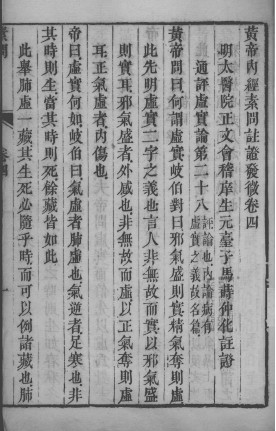 黃帝內經素問註證發微卷四
明太醫院正文會稽庠生元臺子馬蒔仲化註證
通評虛實論第二十八 評論也內論病有虛實之義故名篇
黃帝問曰何謂虛實岐伯對曰邪氣盛則實精氣奪則虛
此先明虛實二字之義也言人非無故而實以邪氣盛
則實耳邪氣盛者外感也非無故而虛以正氣奪則虛
耳正氣虛者內傷也
帝曰虛實何如岐伯曰氣虛者肺虛也氣逆者足寒也非
其時則生當其時則死餘藏皆如此
此舉肺虛一藏其生死必隨乎時而可以例諸藏也肺